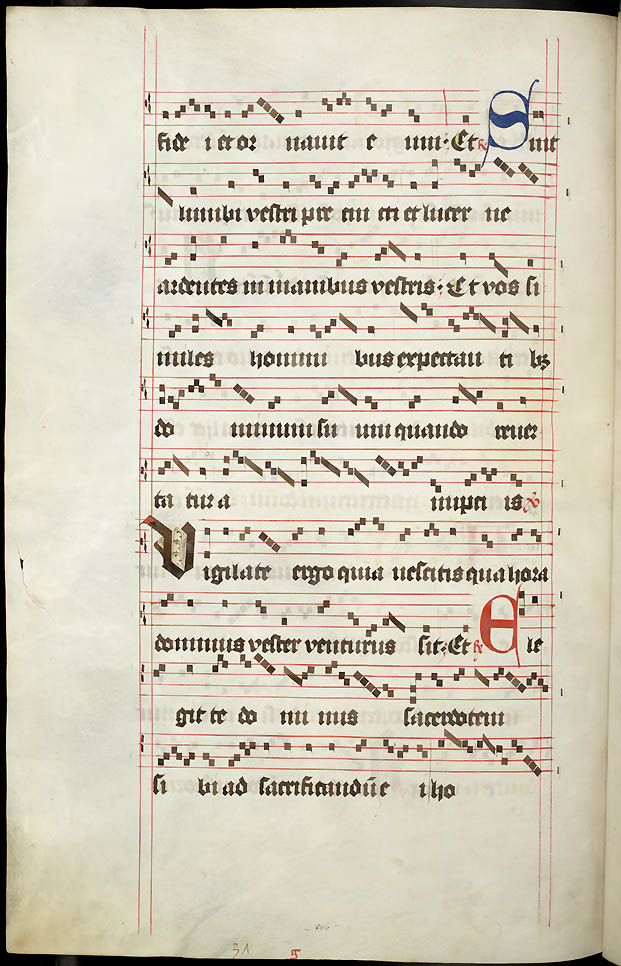 fide i et or nauit e um · Et R Sint
lumbi vestri pre cin cti et lucer ne
ardentes in manibus vestris · Et vos si
miles homini bus expectan ti bus
do minum su um quando reuer
ta tur a nupci is V
Vigilate ergo quia nescitis qua hora
dominus vester venturus sit : Et R Ele
git te do mi nus sacerdotem
si bi ad sacrificandū e i ho
31